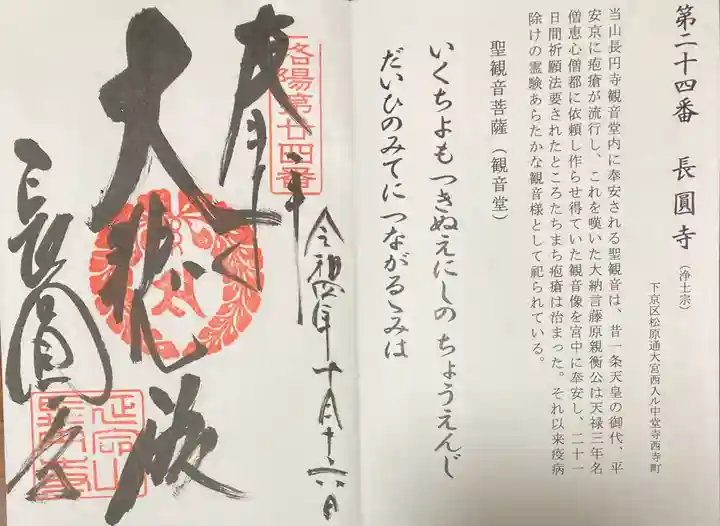 第二十四番 長圓寺 (浄土宗)
下京区松原通大宮西入ル中堂寺西寺町
当山長円寺観音堂内に奉安される聖観音は、昔一条天皇の御代、平
安京に疱瘡が流行し、これを嘆いた大納言藤原親衡公は天禄三年名
僧恵心僧都に依頼し作らせ得ていた観音像を宮中に奉安し、二十一
日間祈願法要されたところたちまち疱瘡は治まった。それ以来疫病
除けの霊験あらたかな観音様として祀られている。
聖観音菩薩(観音堂)
いくちよもつきぬえにしの ちょうえんじ
だいひのみてに つながるゝみは
令和四年十月十六日
洛陽第廿四番
奉拝
大悲殿
長圓寺
延命山
長圓寺